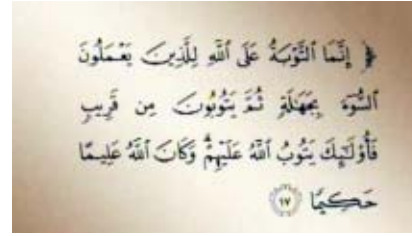 ﴿ إِنَّمَا ٱلتَّوْبَةُ عَلَى ٱللَّهِ لِلَّذِينَ يَعْمَلُونَ
ٱلسُّوٓءَ بِجَهَٰلَةٍ ثُمَّ يَتُوبُونَ مِن قَرِيبٍ
فَأُو۟لَٰٓئِكَ يَتُوبُ ٱللَّهُ عَلَيْهِمْ ۗ وَكَانَ ٱللَّهُ عَلِيمًا
حَكِيمًا ١٧